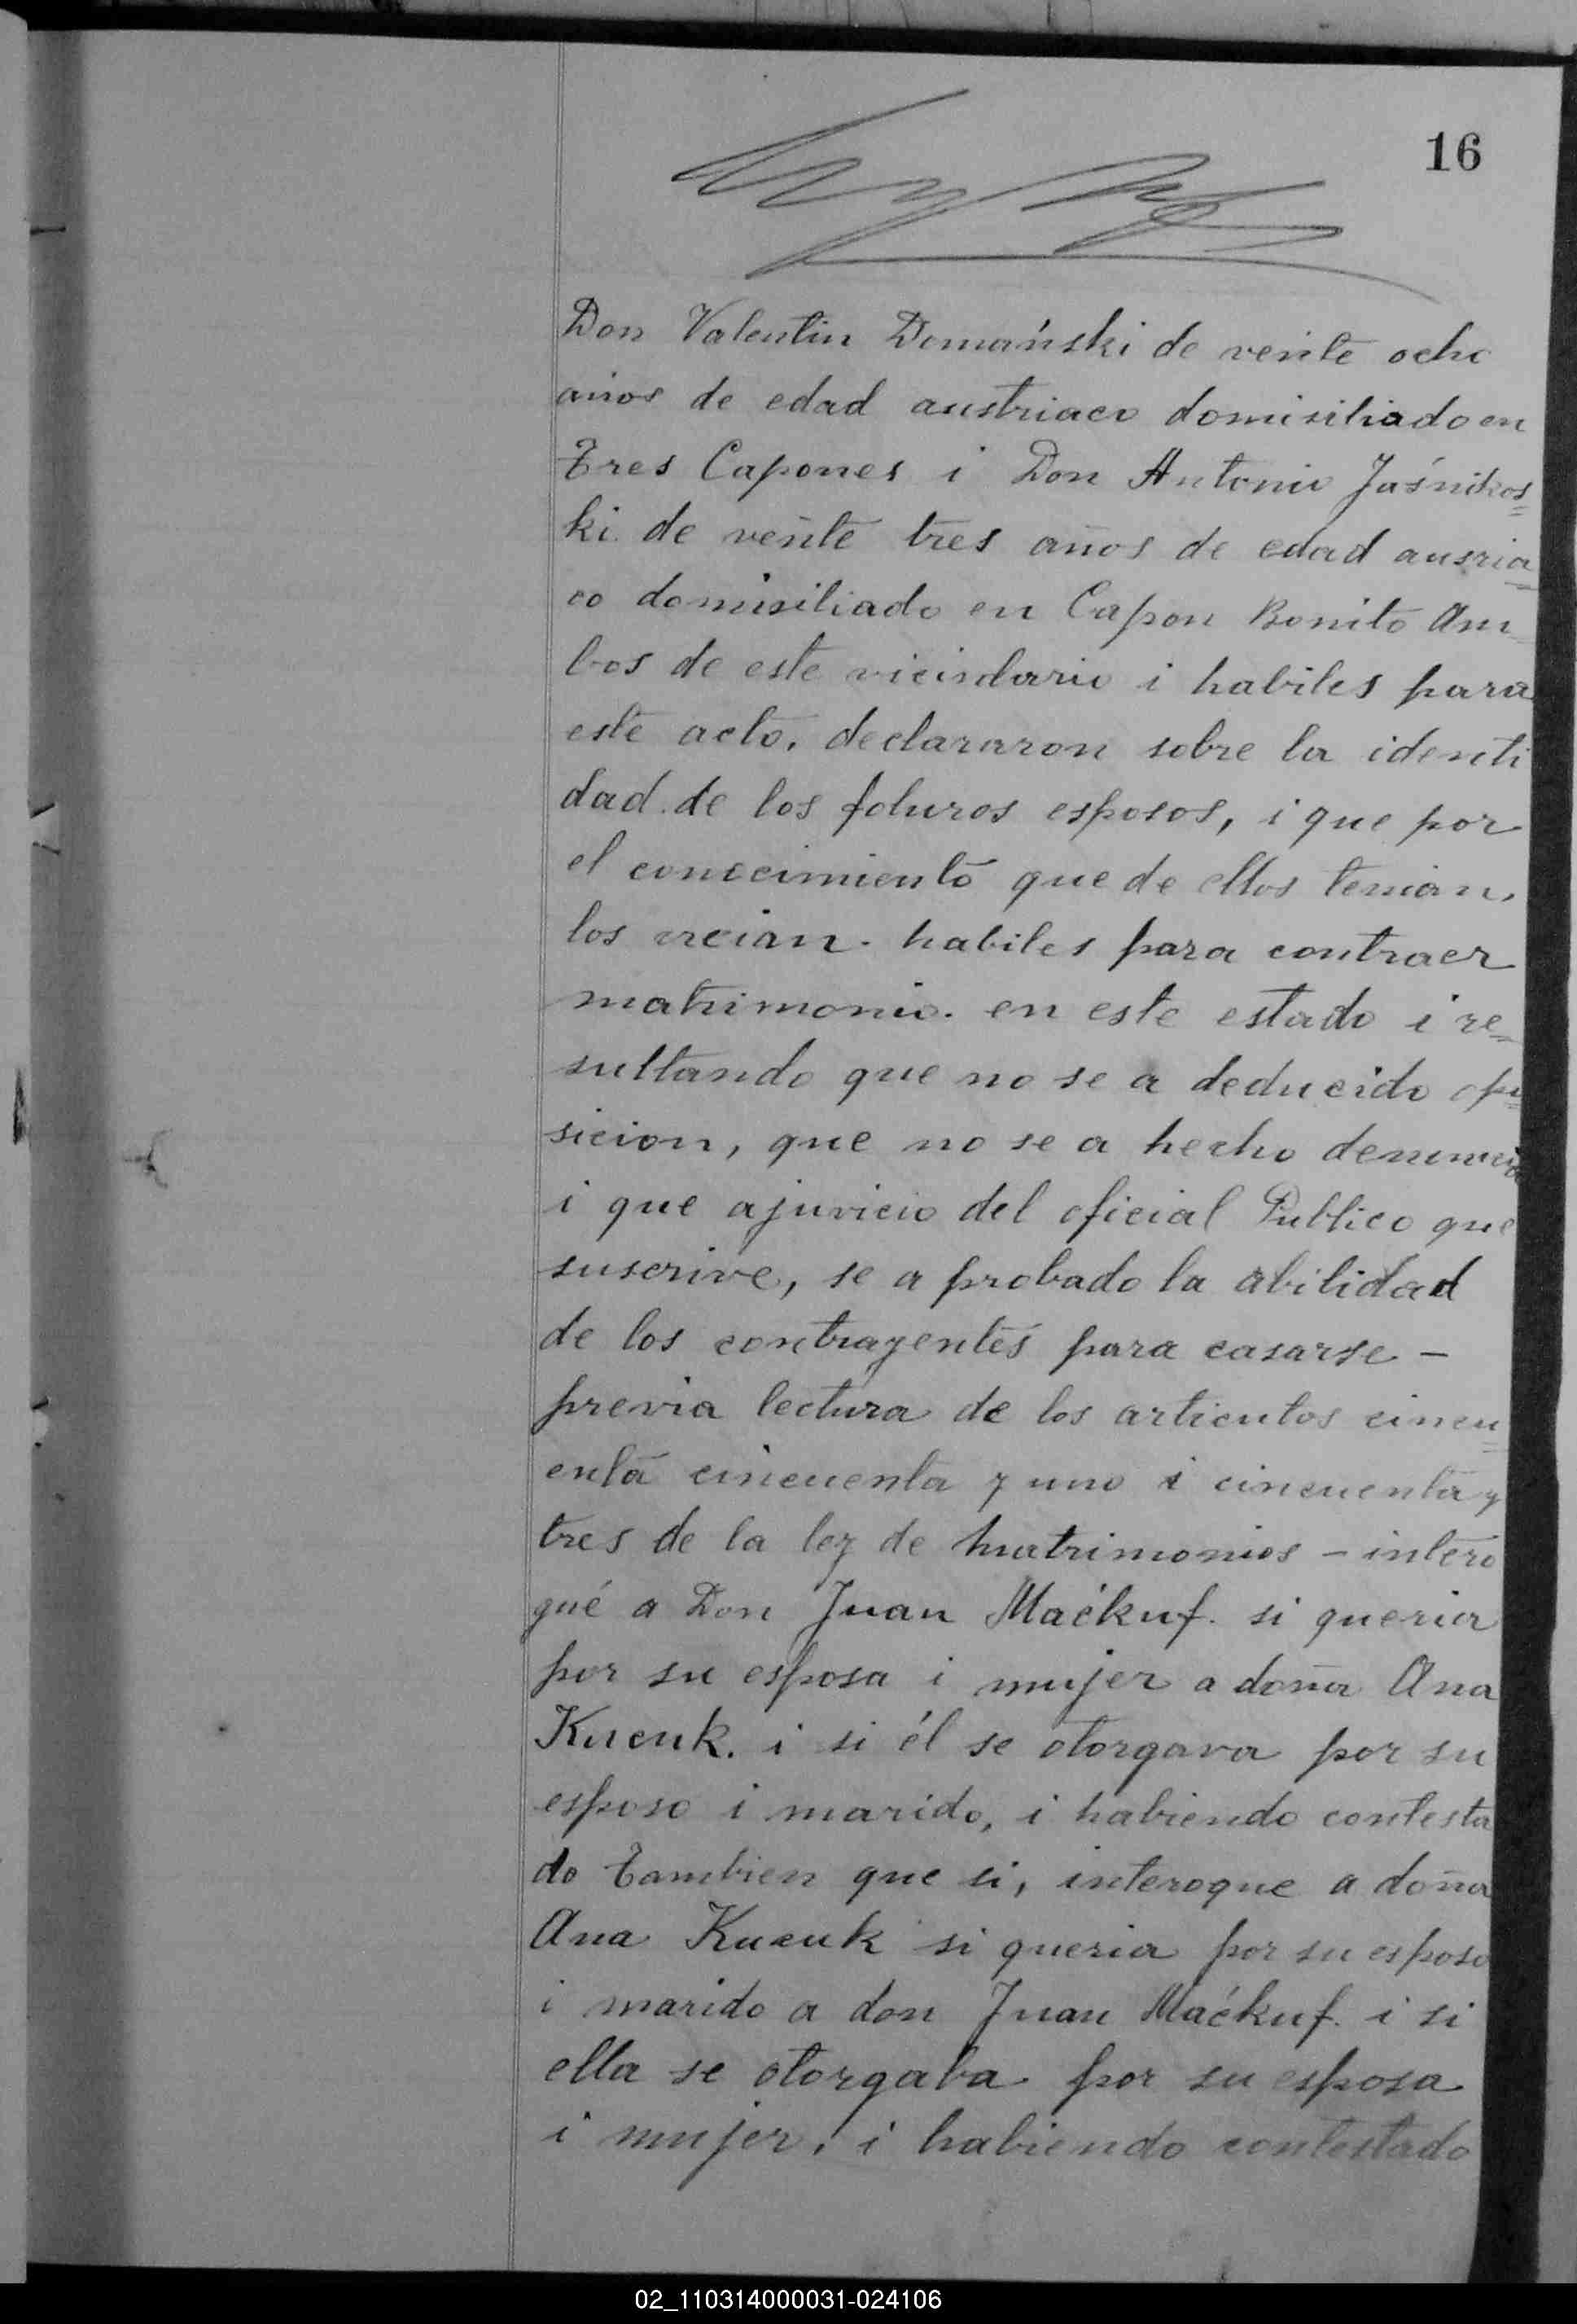 16
Don Valentin Domański de veinte ocho
años de edad austriaco domisiliado en
Tres Capones i Don Antonio Jaśnikos=
ki de veinte tres años de edad ausria=
co domisiliado en Capon Bonito Am
bos de este vicindario i habiles para
este acto, declararon sobre la identi
dad de los foturos esposos, i que por
el conocimiento que de ellos tenian,
los creian habiles para contraer
matrimonio. en este estado i re=
sultando que no se a deducido opo=
sicion, que no se a hecho denuncia
i que a juvicio del oficial Publico que
suscrive, se a probado la abilidad
de los contrayentes para casarse -
previa lectura de los articulos cincu=
enta cincuenta y uno i cincuenta y
tres de la ley de matrimonios - intero
gué a Don Juan Maćkuf. si queria
por su esposa i mujer a doña Ana
Kucuk. i si él se otorgava por su
esposo i marido, i habiendo contesta
do tambien que si, interogue a doña
Ana Kucuk si queria por su esposo
i marido a don Juan Maćkuf. i si
ella se otorgaba por su esposa
i mujer, i habiendo contestado
02_110314000031-024106